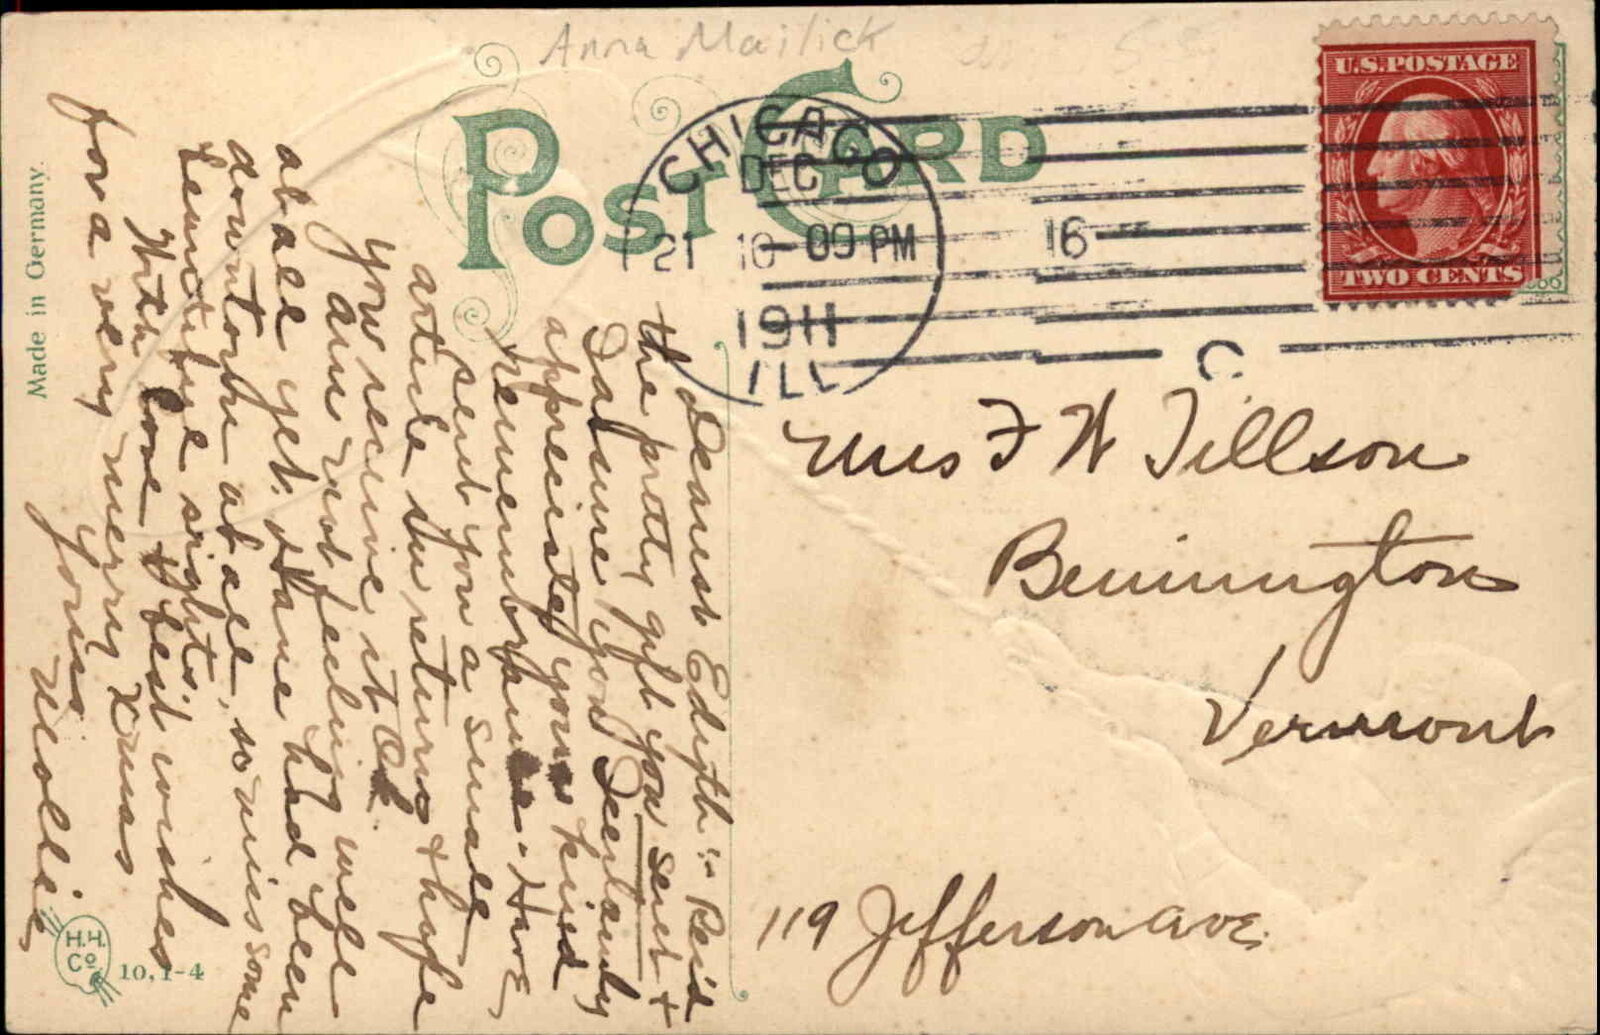 Anna Mailick
POST CARD
CHICAGO
DEC
21 10-00 PM
1911
ILL
16
C
U.S. POSTAGE
TWO CENTS
Made in Germany.
Dearest Edyth:- Rec'd
the pretty gift you sent &
I assure you I certainly
appreciated your kind
remembrance - Have
sent you a small
article in return & hope
you receive it OK.
am not feeling well
at all yet. Have had been
downtown at all, so miss some
beautiful sights.
With love & best wishes
for a very merry Xmas
Yours
Mollie
Mrs F W Tillson
Bennington
Vermont
119 Jefferson ave.
H.H.
Co
10,1-4